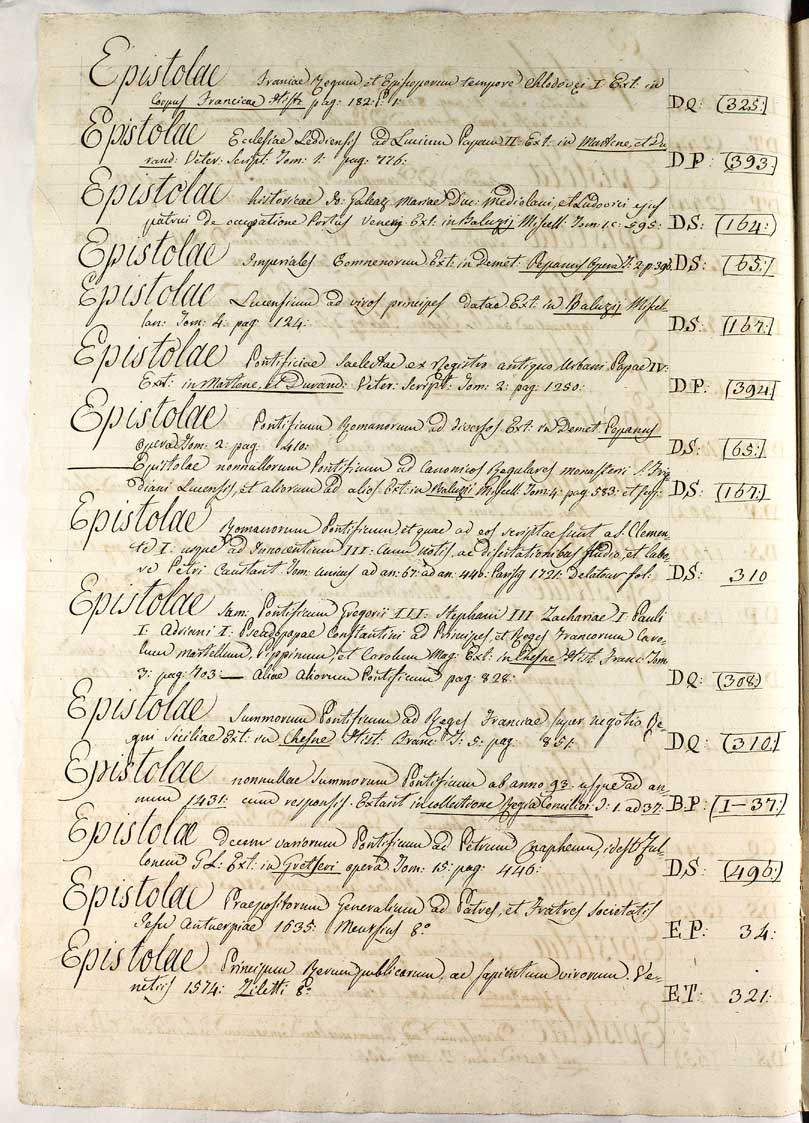 Epistolae Franiae Regum et Episcoporum tempore Chlodovei I Ext. in
Corpus Francicae Histr pag: 182: 1: DQ: (325:)
Epistolae Ecclesiae Leodiensis ad Lucium Papam II: Ext: in Martene, et Du
rand: Veter: Script: Tom: 1: pag: 776: DP: (393)
Epistolae historicae Jo: Galeaz Mariae Duc: Mediolani, et Ludovici ejus
patrui de occupatione Portus Ext: in Baluzij Miscell: Tom: 595: DS: (164:)
Epistolae Imperiales Comnenorum Ext: in Demet: Pepanus Opera T: 2 p 396. DS: (65:)
Epistolae Lucensium ad viros principes datae Ext: in Baluzij Miscel
lan: Tom: 4: pag: 124: DS: (167:)
Epistolae Pontificiae Saelectae ex Registro antiquo Urbani Papae IV:
Ext: in Martene, et Durand: Veter: Script: Tom: 2: pag: 1250: DP: (394)
Epistolae Pontificum Romanorum ad diversos Ext: in Demet Pepanus
opera Tom: 2: pag: 410: DS: (65:)
Epistolae nonnullorum Pontificum ad Canonicos Regulares monasterii S: Frig
diani Lucensis, et aliorum ad alios Ext: in Baluzij Miscell: Tom: 4: pag: 583: et seq: DS: (167:)
Epistolae Romanorum Pontificum, et quae ad eos scriptae sunt a S: Clemen-
te I: usque ad Innocentium III: cum notis, ac disertationibus studio, et labo-
re Petri Coustant. Tom: unicus ad an: 67: ad an: 440: Parisijs 1721: Delatour fol: DS: 310
Epistolae Sum: Pontificum Gregorii III: Stephani III Zachariae I Pauli
I: Adrianni I: Pseudopapae Constantini ad Principes, et Reges Francorum Caro-
lum Martellum, Pippinum, et Carolum Mag: Ext: in Chesne Hist: Franc: Tom
3: pag: 703: — Aliae Aliorum Pontificum pag: 828: DQ: (308:)
Epistolae Summorum Pontificum ad Reges Franciae super negotio Re-
gni Siciliae Ext: in Chesne Hist: Franc: T: 5: pag: 851: DQ: (310:)
Epistolae nonnullae Summorum Pontificum ab anno 93. usque ad an-
num 1431: cum responsis. Extant in collectione Regia Concilior: T: 1. ad 37: BP: (1–37:)
Epistolae decem variorum Pontificum ad Petrum Cnapheum, idest Ful-
lonem GL: Ext: in Gretseri opera Tom: 15: pag: 446: DS: (496:)
Epistolae Praepositorum Generalium ad Patres, et Fratres Societatis
Jesu Antuerpiae 1635: Meursius 8° EP: 34:
Epistolae Principum Rerumpublicarum, ac sapientum virorum. Ve-
netiis 1574: Ziletti 8° ET: 321: